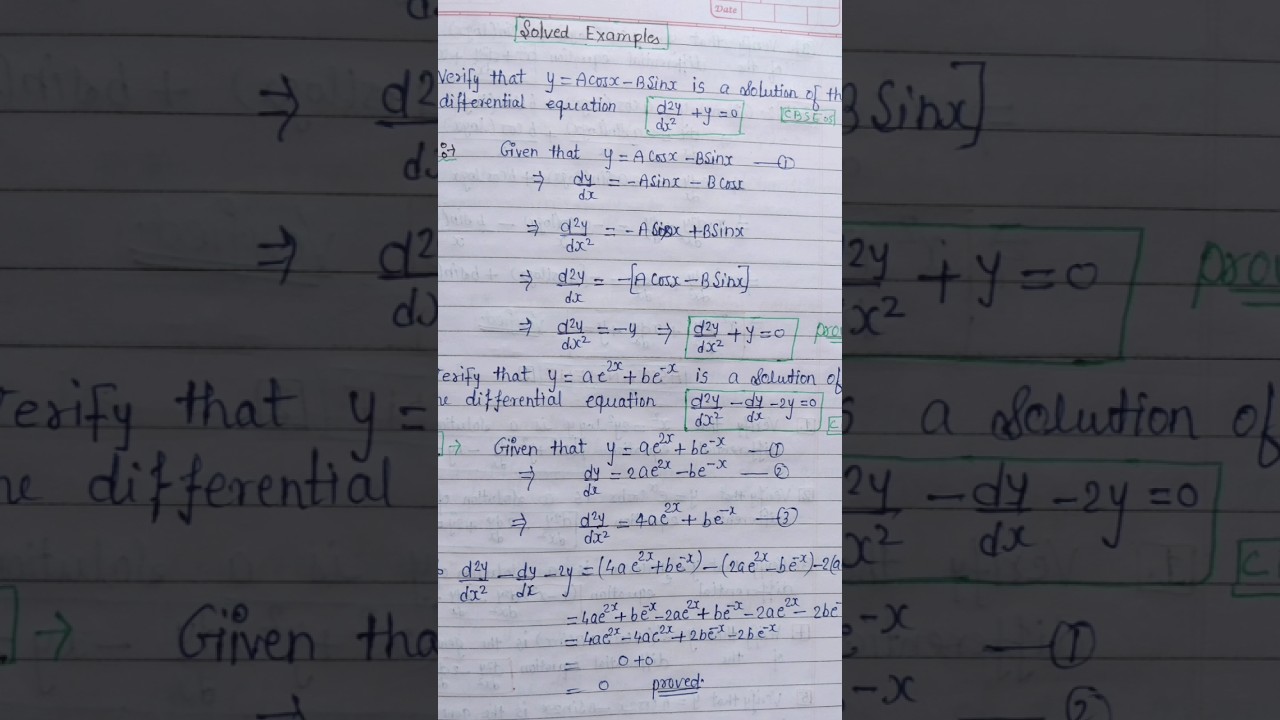 Date
Solved Examples
Verify that y = Acosx - BSinx is a solution of th
differential equation d2y/dx² + y = 0 CBSE 05
Given that y = Acosx - BSinx —①
⇒ dy/dx = -ASinx - Bcosx
⇒ d2y/dx² = -Acosx + BSinx
⇒ d2y/dx = -[Acosx - BSinx]
⇒ d2y/dx² = -y ⇒ d2y/dx² + y = 0 prov
erify that y = ae^2x + be^-x is a solution of
he differential equation d2y/dx² - dy/dx - 2y = 0 C
→ Given that y = ae^2x + be^-x —①
⇒ dy/dx = 2ae^2x - be^-x —②
⇒ d2y/dx² = 4ae^2x + be^-x —③
d2y/dx² - dy/dx - 2y = (4ae^2x + be^-x) - (2ae^2x - be^-x) - 2(a
= 4ae^2x + be^-x - 2ae^2x + be^-x - 2ae^2x - 2be^-
= 4ae^2x - 4ae^2x + 2be^-x - 2be^-x
= 0 + 0
= 0 proved.